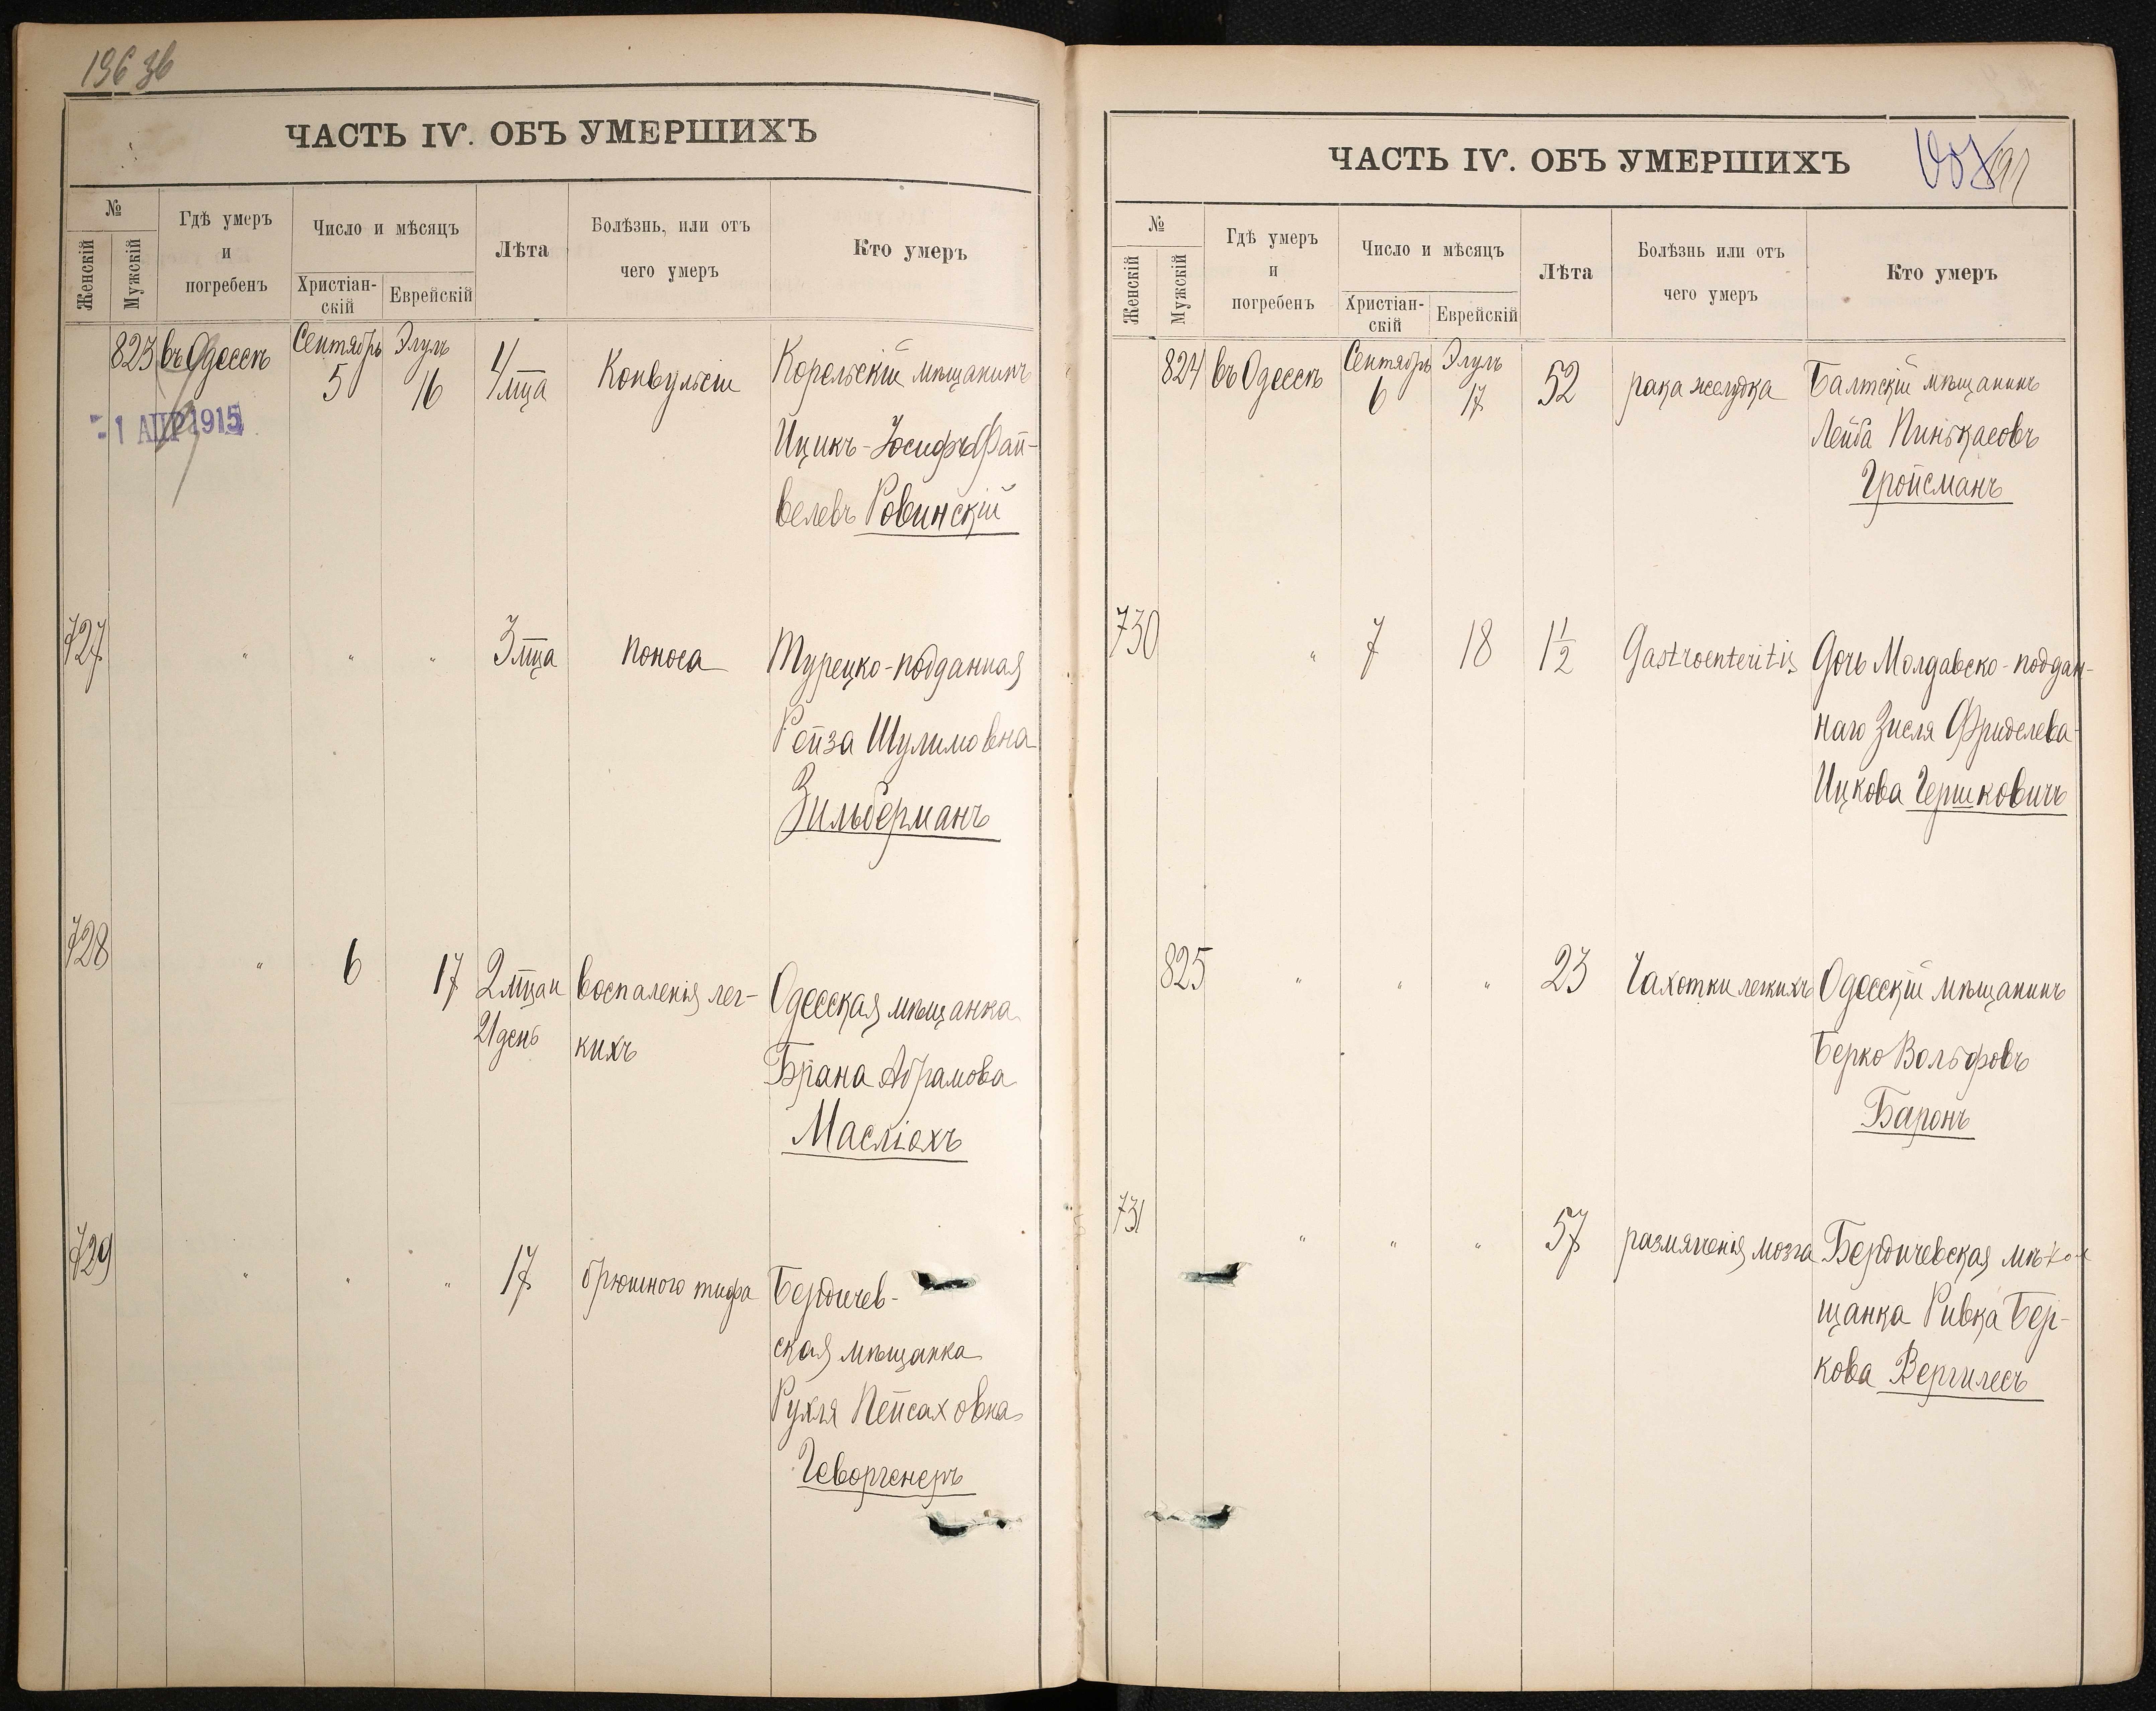 196 зв
ЧАСТЬ IV. ОБЪ УМЕРШИХЪ
№
Женскій
Мужскій
Гдѣ умеръ
и
погребенъ
Число и мѣсяцъ
Христіан-
скій
Еврейскій
Лѣта
Болѣзнь, или отъ
чего умеръ
Кто умеръ
823 въ Одессѣ Сентябрь 5 Элулъ 16 4 мца Конвульсіи Корельскій мѣщанинъ
Ицикъ-Іосифъ Фай-
велевъ Ровинскій
1 АПР 1915
727 " " " 3 мца поноса Турецко-подданная
Рейза Шулимовна
Зильберманъ
728 " 6 17 2 мца и воспаленія лег- Одесская мѣщанка
21 день кихъ Брана Абрамова
Масліохъ
729 " " " 17 брюшного тифа Бердичев-
ская мѣщанка
Рухля Пейсаховна
Геворгенеръ
ЧАСТЬ IV. ОБЪ УМЕРШИХЪ
197
№
Женскій
Мужскій
Гдѣ умеръ
и
погребенъ
Число и мѣсяцъ
Христіан-
скій
Еврейскій
Лѣта
Болѣзнь или отъ
чего умеръ
Кто умеръ
824 въ Одессѣ Сентябрь 6 Элулъ 17 52 рака желудка Балтскій мѣщанинъ
Лейба Пинькасовъ
Гройсманъ
730 " 7 18 1½ Gastroenteritis Дочь Молдавско-поддан-
наго Зисля Фриделева-
Ицкова Гершковичъ
825 " " " 23 Чахотки легкихъ Одесскій мѣщанинъ
Берко Вольфовъ
Баронъ
731 " " " 57 размягченія мозга Бердичевская мѣ-
щанка Ривка Бер-
кова Вергилесъ